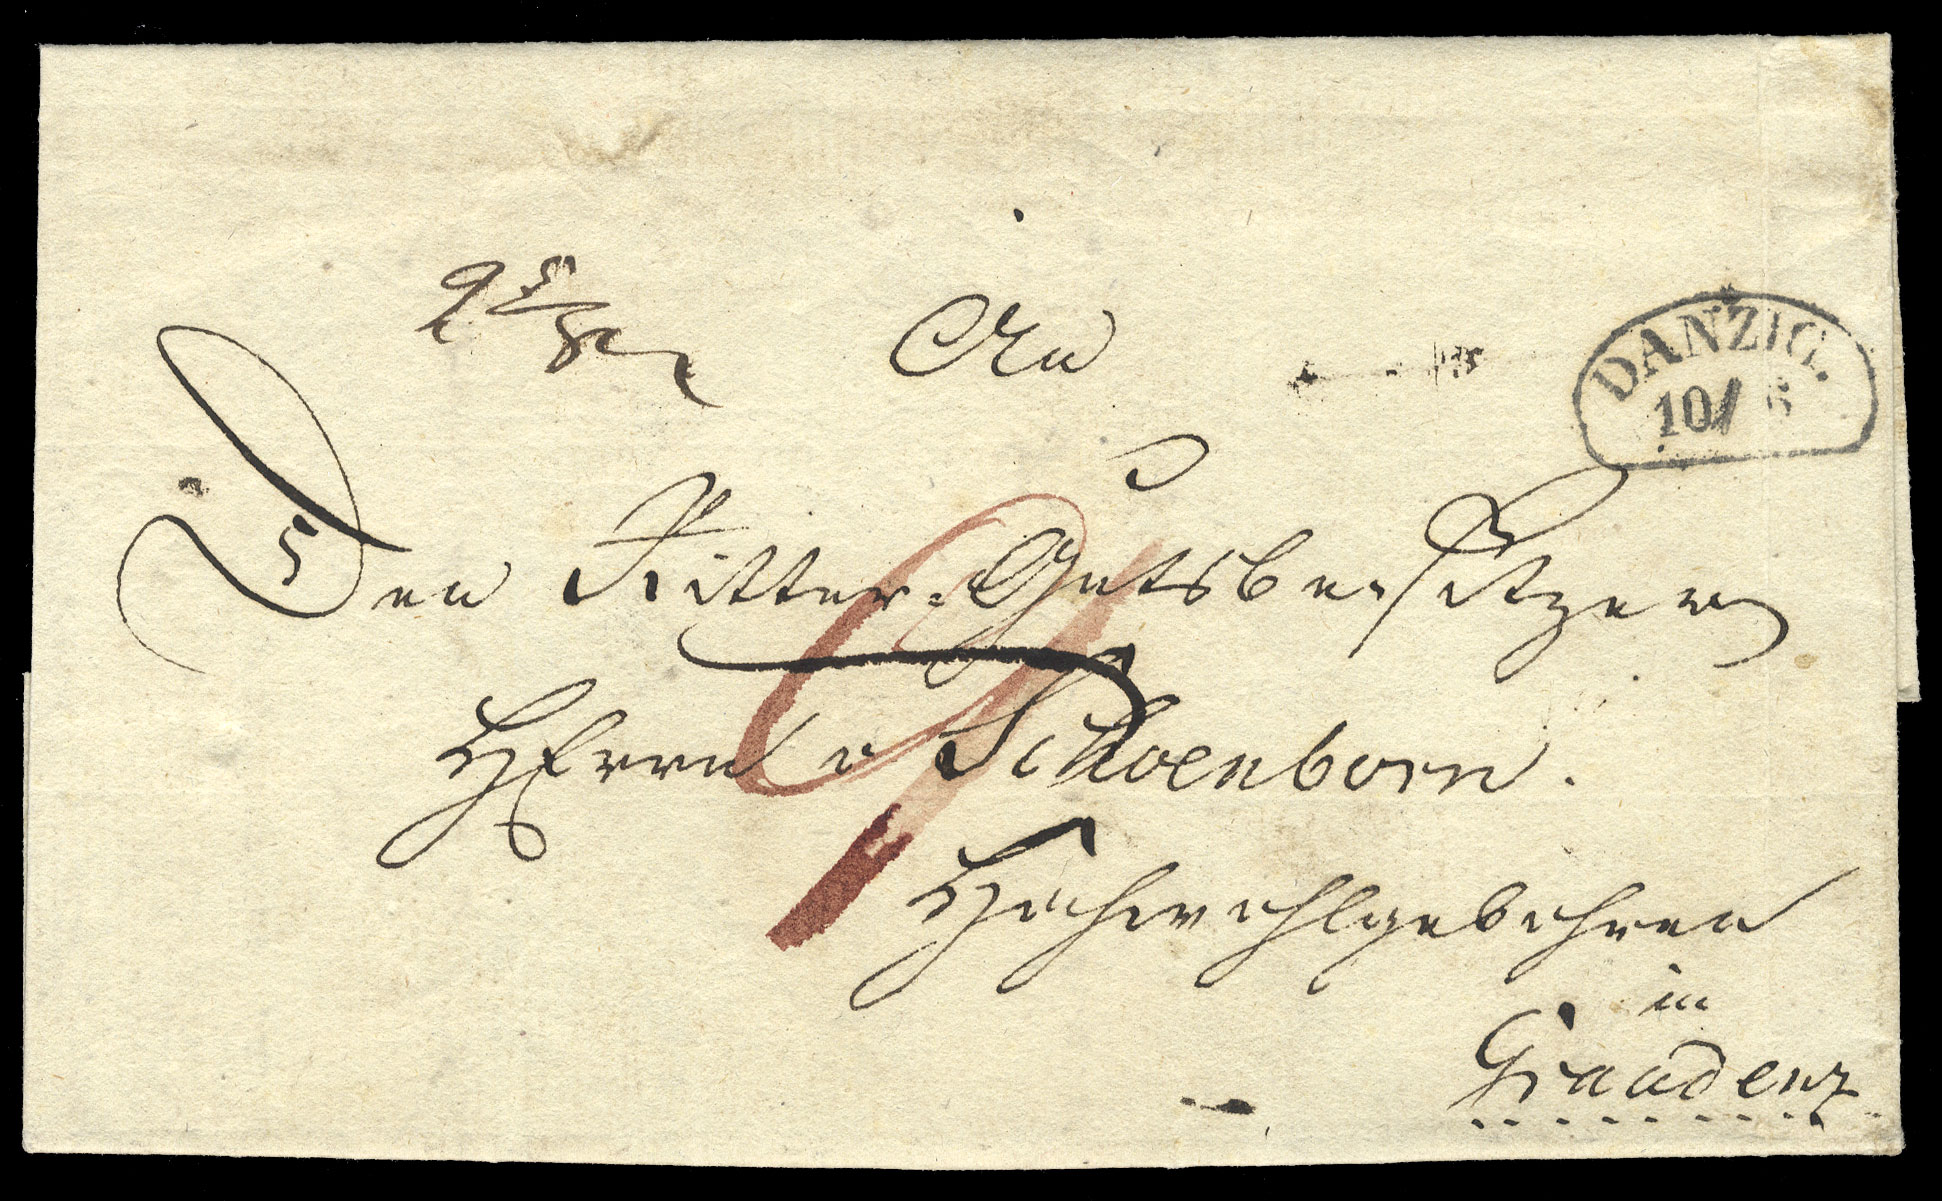 An
DANZIG.
10/6
Den Ritter=Gutsbesitzer
Herrn v Schoenborn.
Hochwohlgebohren
in
Graudenz